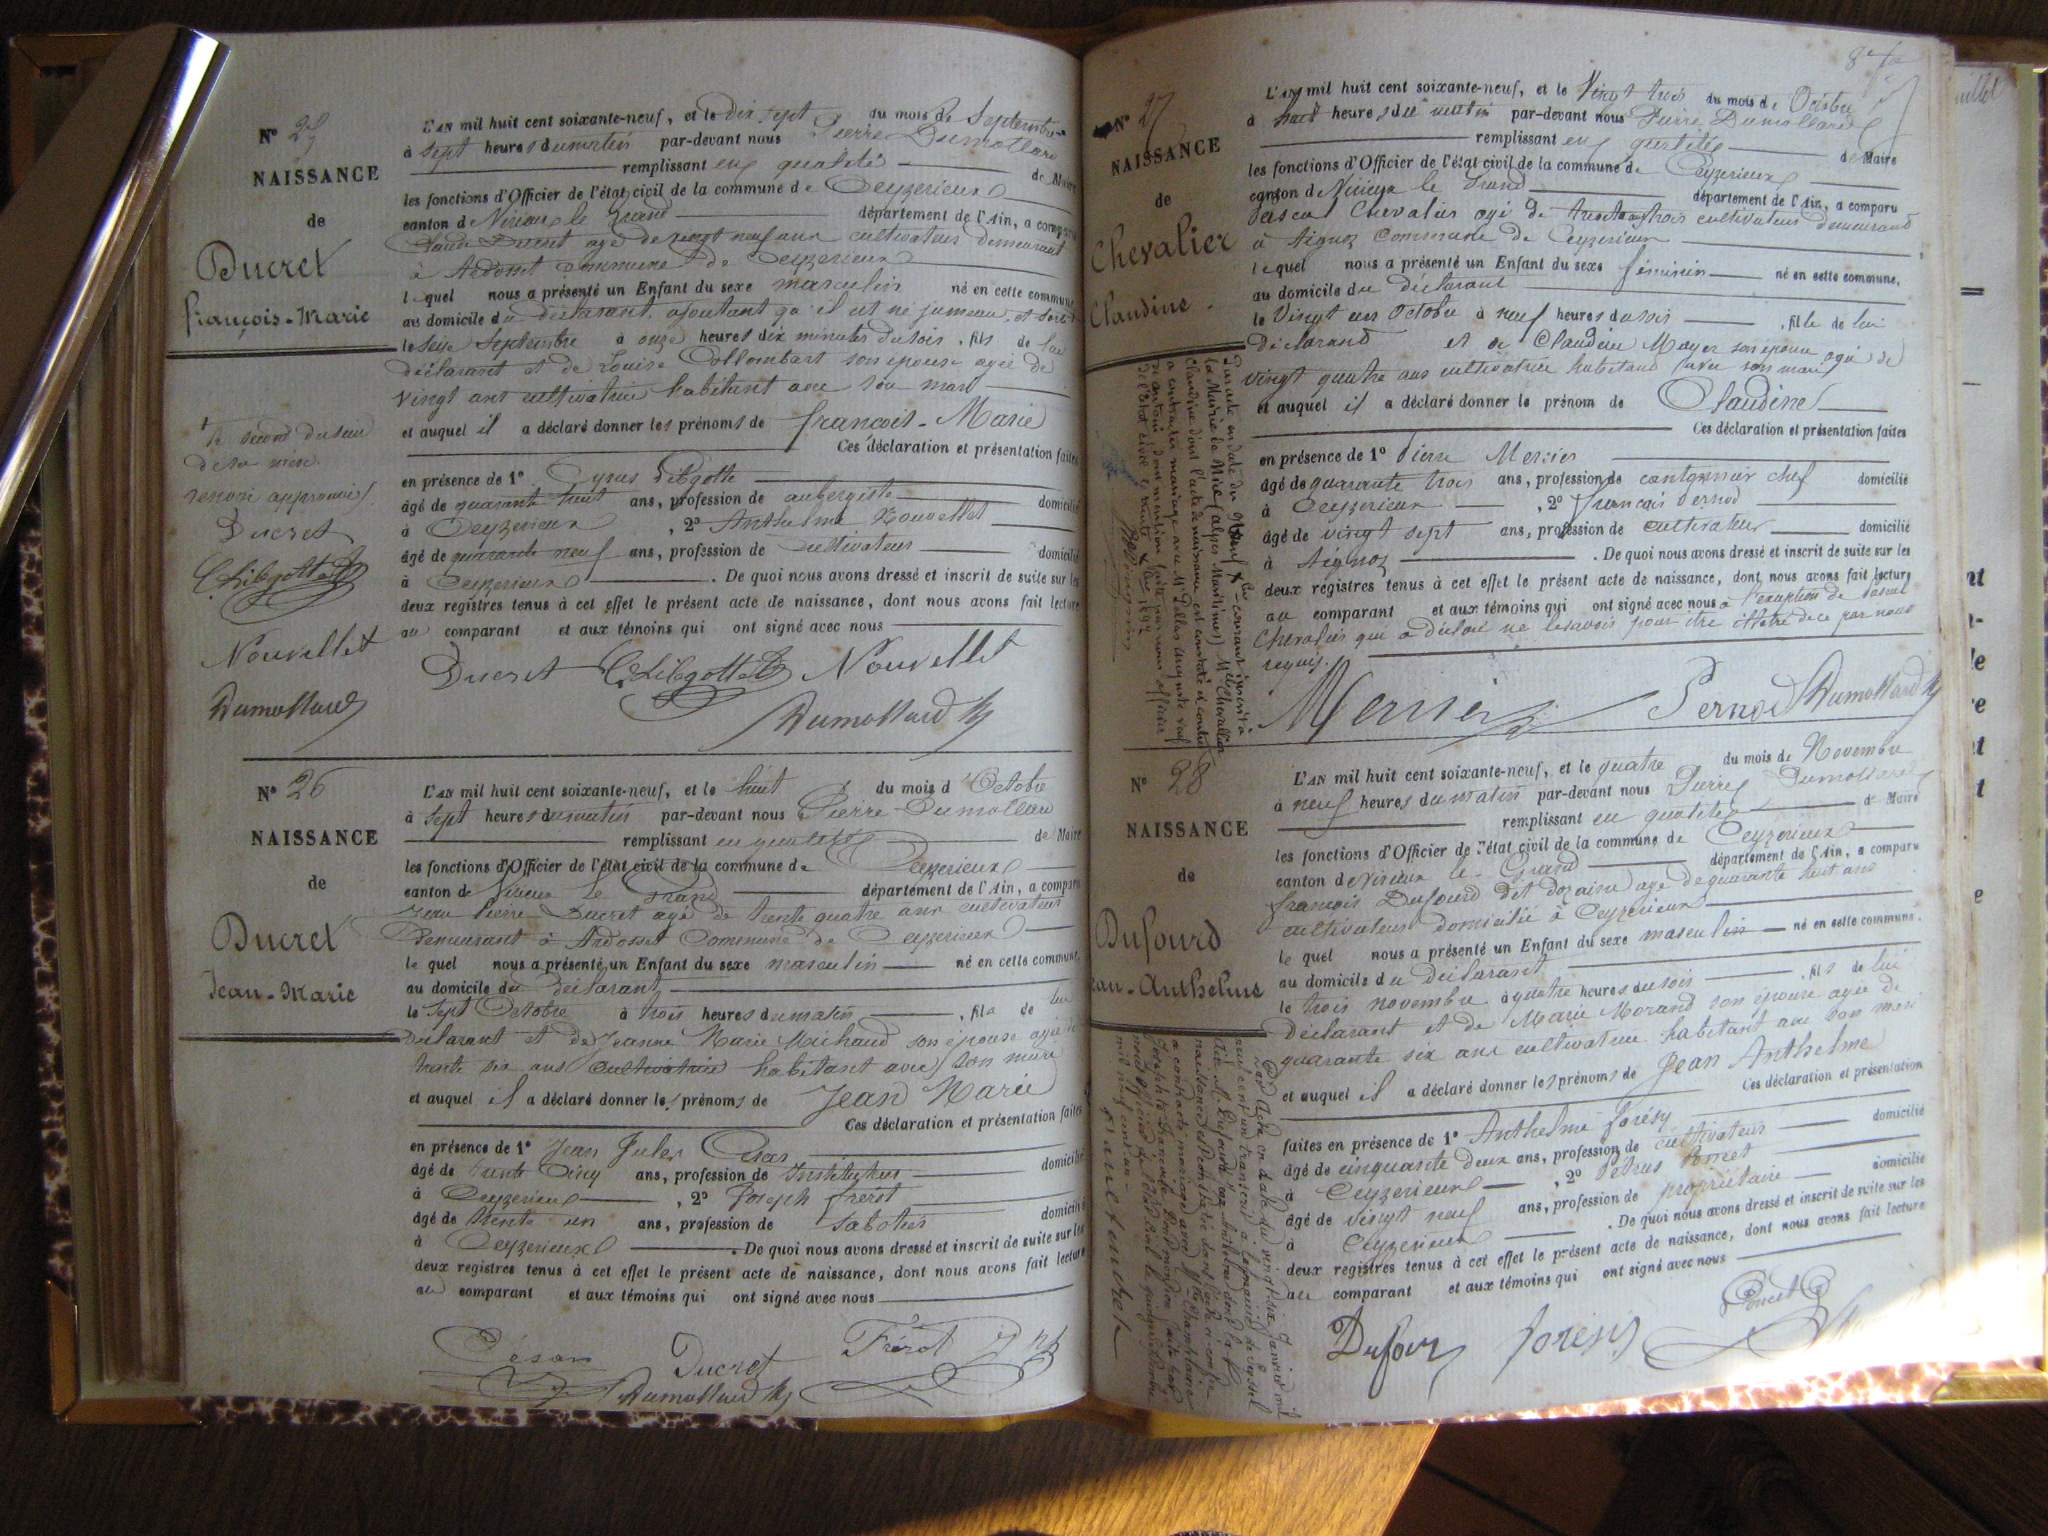 N° 25
NAISSANCE
de
Ducret
François-Marie
L'AN mil huit cent soixante-neuf, et le dix sept du mois de Septembre
à sept heures du matin par-devant nous Pierre Dumollard
remplissant en qualité de Maire
les fonctions d'Officier de l'état civil de la commune de Ceyzerieux
canton de Virieux le Grand département de l'Ain, a comparu
Claude Ducret agé de vingt neuf ans cultivateur demeurant
à Ardosset commune de Ceyzerieux
lequel nous a présenté un Enfant du sexe masculin né en cette commune,
au domicile du déclarant, ajoutant qu'il est né jumeau, et sorti
le seize Septembre à onze heures dix minutes du soir, fils de lui
déclarant et de Louise Collombart son épouse agée de
vingt ans cultivatrice habitant avec son mari
et auquel il a déclaré donner les prénoms de françois-Marie
Ces déclaration et présentation faites
en présence de 1° Cyrus Libgotte
âgé de quarante huit ans, profession de aubergiste domicilié
à Ceyzerieux, 2° Anthelme Nouvellet
âgé de quarante neuf ans, profession de Cultivateur domicilié
à Ceyzerieux. De quoi nous avons dressé et inscrit de suite sur les
deux registres tenus à cet effet le présent acte de naissance, dont nous avons fait lecture
au comparant et aux témoins qui ont signé avec nous
Ducret C. Libgotte Nouvellet
Dumollard
le second du sein
de sa mère.
renvoi approuvé
Ducret
C. Libgotte
Nouvellet
Dumollard
N° 26
NAISSANCE
de
Ducret
Jean-Marie
L'AN mil huit cent soixante-neuf, et le huit du mois d'Octobre
à sept heures du matin par-devant nous Pierre Dumollard
remplissant en qualité de Maire
les fonctions d'Officier de l'état civil de la commune de Ceyzerieux
canton de Virieux le Grand département de l'Ain, a comparu
Jean Pierre Ducret agé de trente quatre ans cultivateur
Demeurant à Ardosset Commune de Ceyzerieux
lequel nous a présenté un Enfant du sexe masculin né en cette commune,
au domicile du déclarant,
le sept Octobre à trois heures du matin, fils de lui
déclarant et de Jeanne Marie Michaud son épouse agée de
trente six ans cultivatrice habitant avec son mari
et auquel il a déclaré donner les prénoms de Jean Marie
Ces déclaration et présentation faites
en présence de 1° Jean Jules César
âgé de trente Cinq ans, profession de Instituteur domicilié
à Ceyzerieux, 2° Joseph frérot
âgé de trente un ans, profession de sabotier domicilié
à Ceyzerieux. De quoi nous avons dressé et inscrit de suite sur les
deux registres tenus à cet effet le présent acte de naissance, dont nous avons fait lecture
au comparant et aux témoins qui ont signé avec nous
César Ducret Frérot
Dumollard
N° 27
NAISSANCE
de
Chevalier
Claudine.
L'AN mil huit cent soixante-neuf, et le Vingt trois du mois de Octobre
à huit heures du matin par-devant nous Pierre Dumollard
remplissant en qualité de Maire
les fonctions d'Officier de l'état civil de la commune de Ceyzerieux
canton de Virieux le Grand département de l'Ain, a comparu
Pascal Chevalier agé de trente trois cultivateur demeurant
à Aignoz Commune de Ceyzerieux
lequel nous a présenté un Enfant du sexe féminin né en cette commune,
au domicile du déclarant
le Vingt un Octobre à neuf heures du soir, fille de lui
déclarant et de Claudine Mayer son épouse agée de
vingt quatre ans cultivatrice habitant avec son mari
et auquel il a déclaré donner le prénom de Claudine
Ces déclaration et présentation faites
en présence de 1° Pierre Mercier
âgé de quarante trois ans, profession de cantonnier chef domicilié
à Ceyzerieux, 2° françois Pernod
âgé de vingt sept ans, profession de cultivateur domicilié
à Aignoz. De quoi nous avons dressé et inscrit de suite sur les
deux registres tenus à cet effet le présent acte de naissance, dont nous avons fait lecture
au comparant et aux témoins qui ont signé avec nous à l'exception de Pascal
Chevalier qui a déclaré ne le savoir pour être illétré de ce par nous
requis.
Mercier Pernod Dumollard
N° 28
NAISSANCE
de
Dufourd
Jean-Anthelme
L'AN mil huit cent soixante-neuf, et le quatre du mois de Novembre
à neuf heures du matin par-devant nous Pierre Dumollard
remplissant en qualité de Maire
les fonctions d'Officier de l'état civil de la commune de Ceyzerieux
canton de Virieux le Grand département de l'Ain, a comparu
françois Dufourd dit dozaine agé de quarante huit ans
cultivateur domicilié à Ceyzerieux
lequel nous a présenté un Enfant du sexe masculin né en cette commune,
au domicile du déclarant
le trois novembre à quatre heures du soir, fils de lui
déclarant et de Marie Morand son épouse agée de
quarante six ans cultivatrice habitant avec son mari
et auquel il a déclaré donner les prénoms de Jean Anthelme
Ces déclaration et présentation
faites en présence de 1° Anthelme forésy
âgé de cinquante deux ans, profession de cultivateur domicilié
à Ceyzerieux, 2° Pétrus Poncet
âgé de vingt neuf ans, profession de propriétaire domicilié
à Ceyzerieux. De quoi nous avons dressé et inscrit de suite sur les
deux registres tenus à cet effet le présent acte de naissance, dont nous avons fait lecture
au comparant et aux témoins qui ont signé avec nous
Dufour foresy Poncet